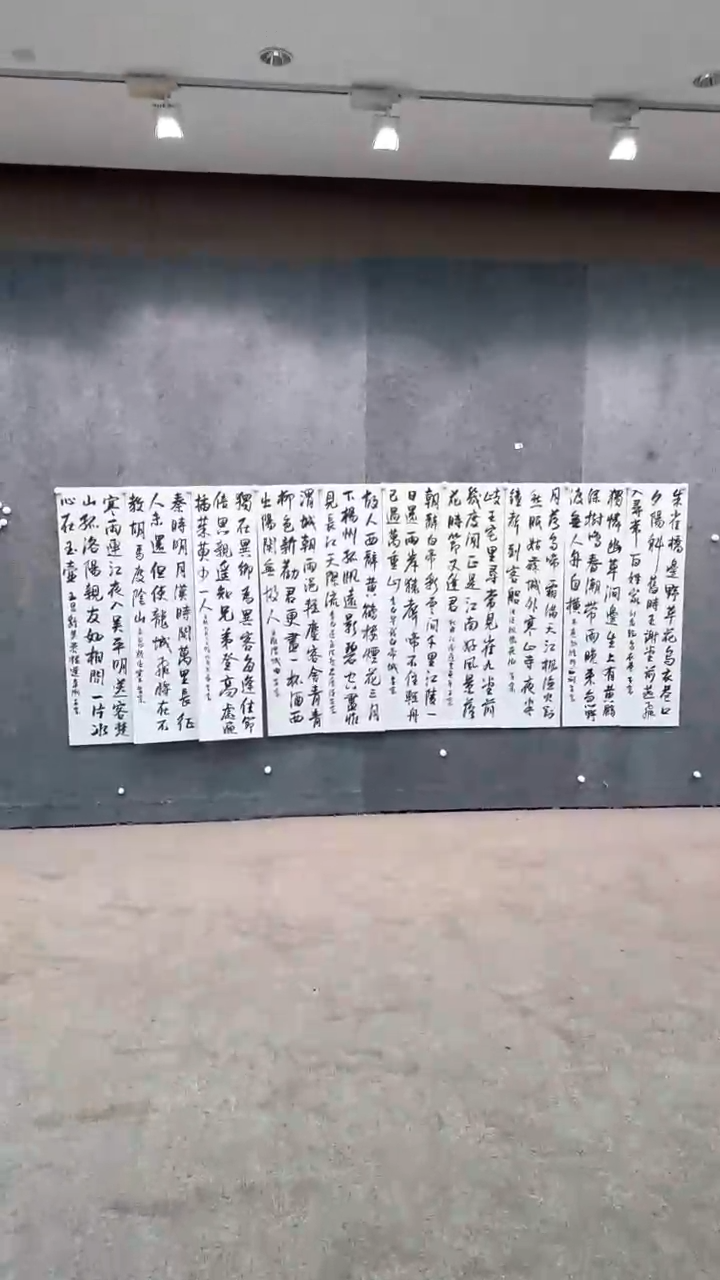 朱雀橋邊野草花烏衣巷口
夕陽斜舊時王謝堂前燕飛
入尋常百姓家
獨憐幽草澗邊生上有黃鸝
深樹鳴春潮帶雨晚來急野
渡無人舟自橫
月落烏啼霜滿天江楓漁火對
愁眠姑蘇城外寒山寺夜半
鐘聲到客船
岐王宅里尋常見崔九堂前
幾度聞正是江南好風景落
花時節又逢君
朝辭白帝彩雲間千里江陵一
日還兩岸猿聲啼不住輕舟
已過萬重山
故人西辭黃鶴樓煙花三月
下揚州孤帆遠影碧空盡唯
見長江天際流
渭城朝雨浥輕塵客舍青青
柳色新勸君更盡一杯酒西
出陽關無故人
獨在異鄉為異客每逢佳節
倍思親遥知兄弟登高處遍
插茱萸少一人
秦時明月漢時關萬里長征
人未還但使龍城飛將在不
教胡馬度陰山
寒雨連江夜入吳平明送客楚
山孤洛陽親友如相問一片冰
心在玉壺